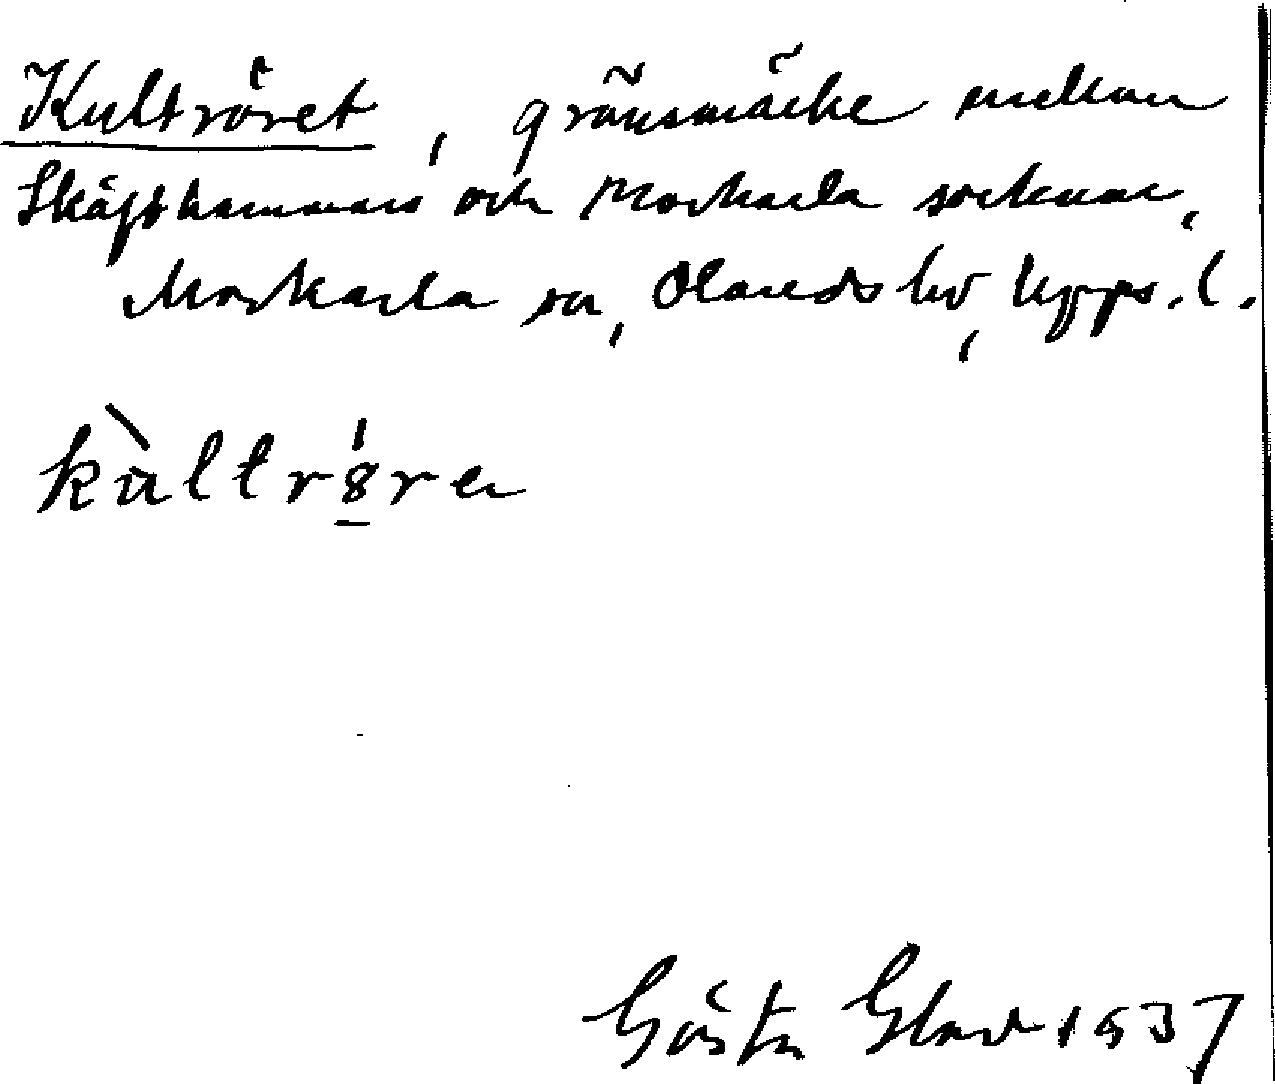 Kultröret, gränsmärke mellan
Skäfthammars och Morkarla socknar,
Morkarla sn, Olands hd, Upps. l.
kùltrö́re
Gösta Glad 1937